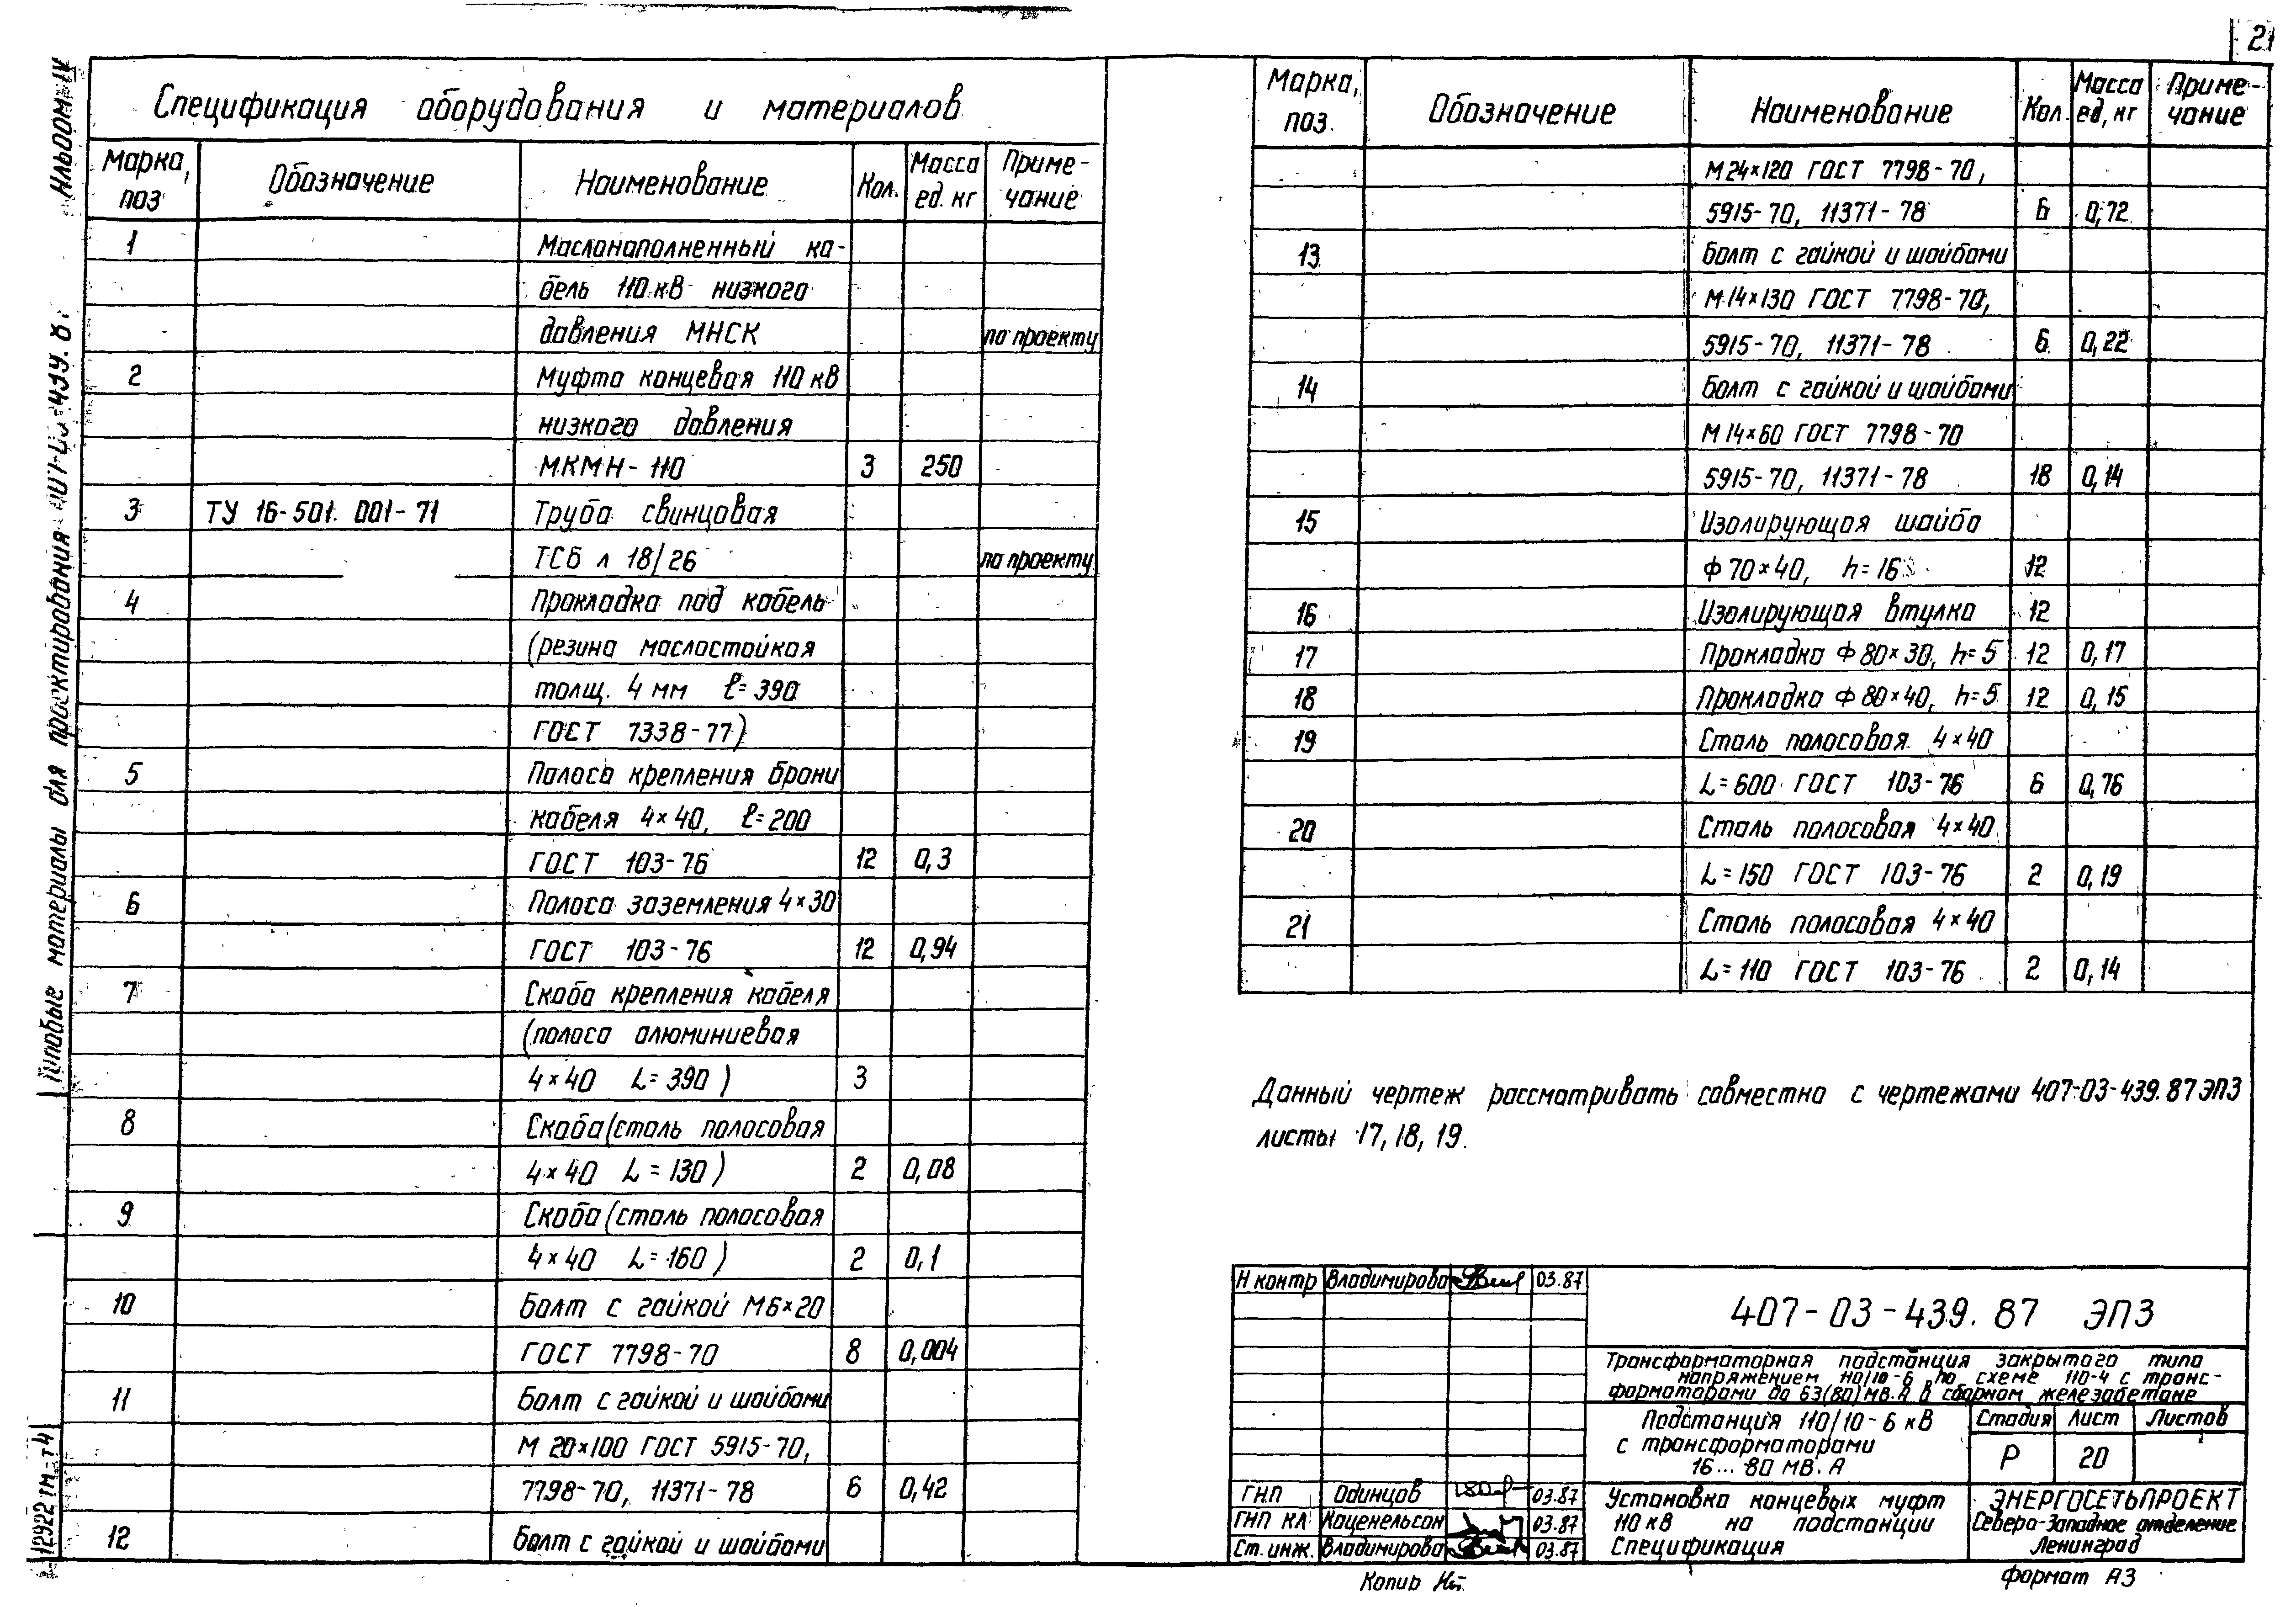 21
Альбом IV
Типовые материалы для проектирования
12922 тм-т4
Спецификация оборудования и материалов
Марка, поз Обозначение Наименование Кол. Масса ед. кг Приме-чание
1 Маслонаполненный ка-
бель 110 кВ низкого
давления МНСК по проекту
2 Муфта концевая 110 кВ
низкого давления
МКМН-110 3 250
3 ТУ 16-501.001-71 Труба свинцовая
ТСб л 18/26 по проекту
4 Прокладка под кабель
(резина маслостойкая
толщ. 4 мм ℓ=390
ГОСТ 7338-77)
5 Полоса крепления брони
кабеля 4×40, ℓ=200
ГОСТ 103-76 12 0,3
6 Полоса заземления 4×30
ГОСТ 103-76 12 0,94
7 Скоба крепления кабеля
(полоса алюминиевая
4×40 L=390) 3
8 Скоба (сталь полосовая
4×40 L=130) 2 0,08
9 Скоба (сталь полосовая
4×40 L=160) 2 0,1
10 Болт с гайкой М6×20
ГОСТ 7798-70 8 0,004
11 Болт с гайкой и шайбами
М 20×100 ГОСТ 5915-70,
7798-70, 11371-78 6 0,42
12 Болт с гайкой и шайбами
Марка, поз. Обозначение Наименование Кол. Масса ед, кг Приме-чание
М24×120 ГОСТ 7798-70,
5915-70, 11371-78 6 0,72
13 Болт с гайкой и шайбами
М14×130 ГОСТ 7798-70,
5915-70, 11371-78 6 0,22
14 Болт с гайкой и шайбами
М14×60 ГОСТ 7798-70
5915-70, 11371-78 18 0,14
15 Изолирующая шайба
Ф70×40, h=16 12
16 Изолирующая втулка 12
17 Прокладка Ф80×30, h=5 12 0,17
18 Прокладка Ф80×40, h=5 12 0,15
19 Сталь полосовая 4×40
L=600 ГОСТ 103-76 6 0,76
20 Сталь полосовая 4×40
L=150 ГОСТ 103-76 2 0,19
21 Сталь полосовая 4×40
L=110 ГОСТ 103-76 2 0,14
Данный чертеж рассматривать совместно с чертежами 407-03-439.87 ЭП3
листы 17, 18, 19.
Н контр Владимирова 03.87
407-03-439.87 ЭП3
Трансформаторная подстанция закрытого типа
напряжением 110/10-6 по схеме 110-4 с транс-
форматорами до 63(80) МВ.А в сборном железобетоне
Подстанция 110/10-6 кВ
с трансформаторами
16...80 МВ.А
Стадия Лист Листов
Р 20
ГНП Одинцов 03.87
ГНП КЛ Каценельсон 03.87
Ст. инж. Владимирова 03.87
Установка концевых муфт
110 кВ на подстанции
Спецификация
ЭНЕРГОСЕТЬПРОЕКТ
Северо-Западное отделение
Ленинград
Копир
формат А3